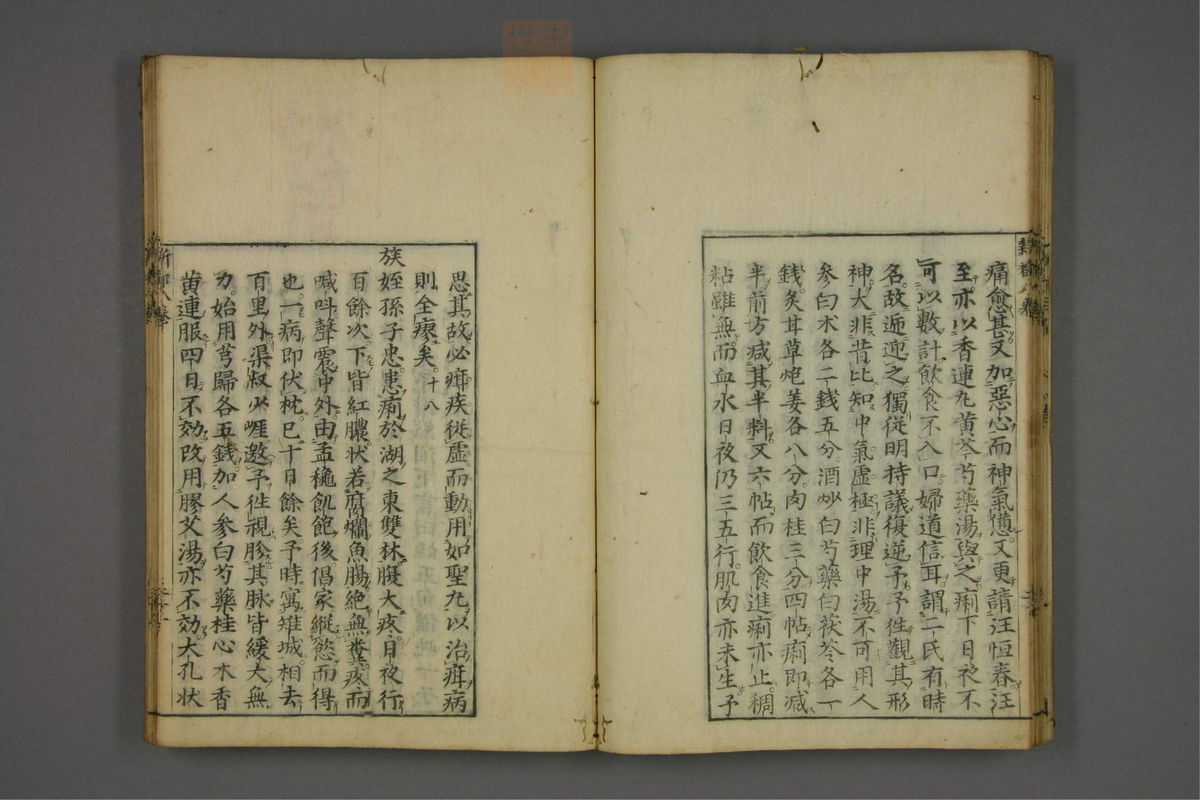 痛愈甚又加惡心而神氣憊又更請汪恒春汪
至亦以香連丸黄芩芍藥湯與之痢下日夜不
可以數計飲食不入口婦道信耳謂二氏有時
名故逓迎之獨從明持議復逆予予徃觀其形
神大非昔比知中氣虛極非理中湯不可用人
參白朮各二錢五分酒炒白芍藥白茯苓各一
錢炙甘草炮姜各八分肉桂三分四帖痢即減
半前方減其半料又六帖而飲食進痢亦止稠
粘雖無而血水日夜仍三五行肌肉亦未生予
思其故必痺疾從虛而動用如聖丸以治疳病
則全瘳矣十八
族姪孫子忠患痢於湖之東雙林腹大疼日夜行
百餘次下皆紅膿状若腐爛魚腸絶無糞疼而
喊呌聲震中外由孟穐飢飽後倡家縱慾而得
也一病即伏枕已十日餘矣予時寓雉城相去
百里外渠叔少崕邀予徃視胗其脉皆緩大無
力始用芎歸各五錢加人參白芍藥桂心木香
黄連服四日不効改用膠艾湯亦不効大孔状